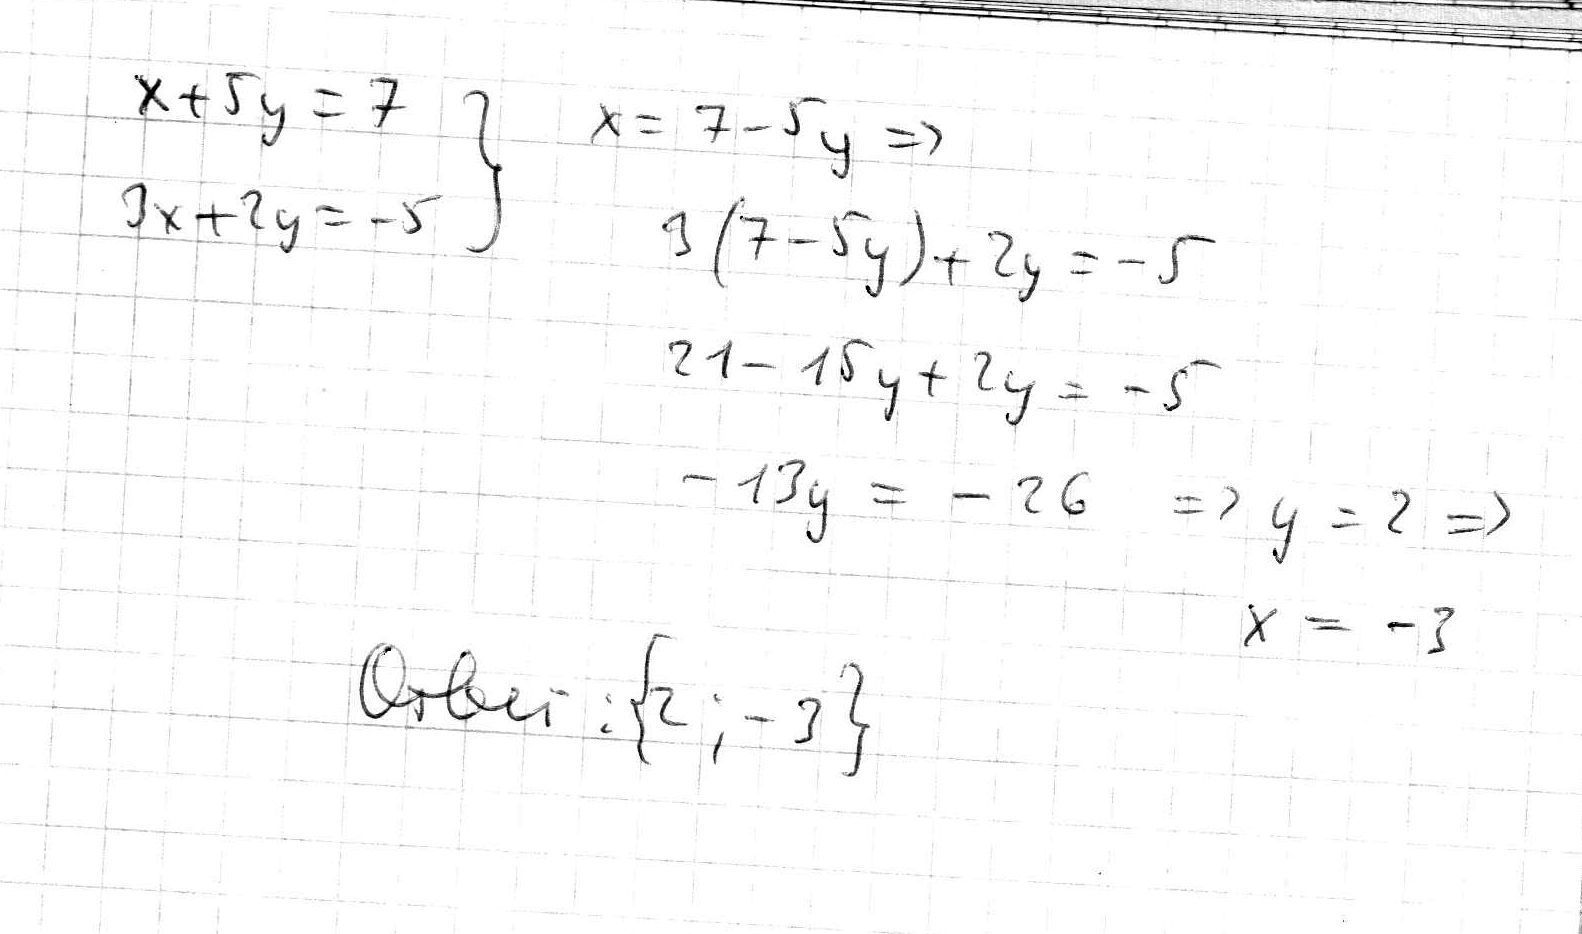 x+5y=7 } x=7-5y =>
3x+2y=-5
3(7-5y)+2y=-5
21-15y+2y=-5
-13y=-26 => y=2 =>
x=-3
Ответ: {2;-3}